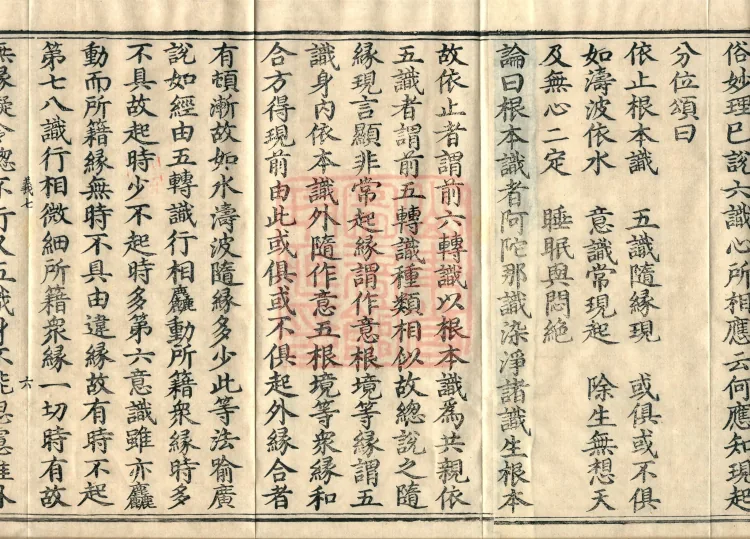 俗妙理已說六識心所相應云何應知現起
分位頌曰
依止根本識　五識隨緣現　或俱或不俱
如濤波依水　意識常現起　除生無想天
及無心二定　睡眠與悶絕
論曰根本識者阿陀那識染淨諸識生根本
故依止者謂前六轉識以根本識為共親依
五識者謂前五轉識種類相似故總說之隨
緣現言顯非常起緣謂作意根境等緣謂五
識身內依本識外隨作意五根境等衆緣和
合方得現前由此或俱或不俱起外緣合者
有頓漸故如水濤波隨緣多少此等法喻廣
說如經由五轉識行相麤動所籍衆緣時多
不具故起時少不起時多第六意識雖亦麤
動而所籍緣無時不具由違緣故有時不起
第七八識行相微細所籍衆緣一切時有故
義七　六
無緣礙令總不行又五識身不能思慮唯外